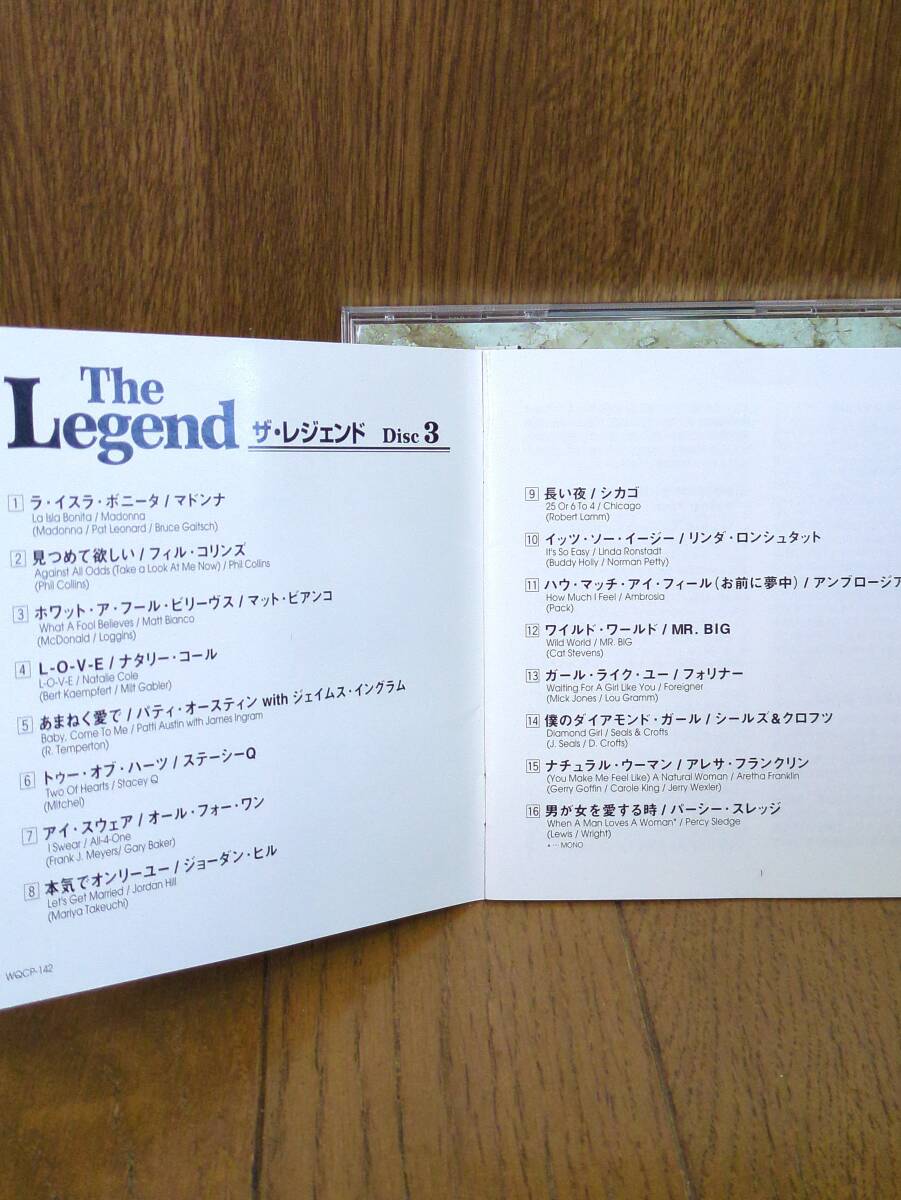 The
Legend
ザ・レジェンド Disc 3
1 ラ・イスラ・ボニータ / マドンナ
La Isla Bonita / Madonna
(Madonna / Pat Leonard / Bruce Gaitsch)
2 見つめて欲しい / フィル・コリンズ
Against All Odds (Take a Look At Me Now) / Phil Collins
(Phil Collins)
3 ホワット・ア・フール・ビリーヴス / マット・ビアンコ
What A Fool Believes / Matt Bianco
(McDonald / Loggins)
4 L-O-V-E / ナタリー・コール
L-O-V-E / Natalie Cole
(Bert Kaempfert / Milt Gabler)
5 あまねく愛で / パティ・オースティン with ジェイムス・イングラム
Baby, Come To Me / Patti Austin with James Ingram
(R. Temperton)
6 トゥー・オブ・ハーツ / ステーシーQ
Two Of Hearts / Stacey Q
(Mitchel)
7 アイ・スウェア / オール・フォー・ワン
I Swear / All-4-One
(Frank J. Meyers/ Gary Baker)
8 本気でオンリーユー / ジョーダン・ヒル
Let's Get Married / Jordan Hill
(Mariya Takeuchi)
WQCP-142
9 長い夜 / シカゴ
25 Or 6 To 4 / Chicago
(Robert Lamm)
10 イッツ・ソー・イージー / リンダ・ロンシュタット
It's So Easy / Linda Ronstadt
(Buddy Holly / Norman Petty)
11 ハウ・マッチ・アイ・フィール（お前に夢中） / アンブロージア
How Much I Feel / Ambrosia
(Pack)
12 ワイルド・ワールド / MR. BIG
Wild World / MR. BIG
(Cat Stevens)
13 ガール・ライク・ユー / フォリナー
Waiting For A Girl Like You / Foreigner
(Mick Jones / Lou Gramm)
14 僕のダイアモンド・ガール / シールズ＆クロフツ
Diamond Girl / Seals & Crofts
(J. Seals / D. Crofts)
15 ナチュラル・ウーマン / アレサ・フランクリン
(You Make Me Feel Like) A Natural Woman / Aretha Franklin
(Gerry Goffin / Carole King / Jerry Wexler)
16 男が女を愛する時 / パーシー・スレッジ
When A Man Loves A Woman* / Percy Sledge
(Lewis / Wright)
* … MONO
1